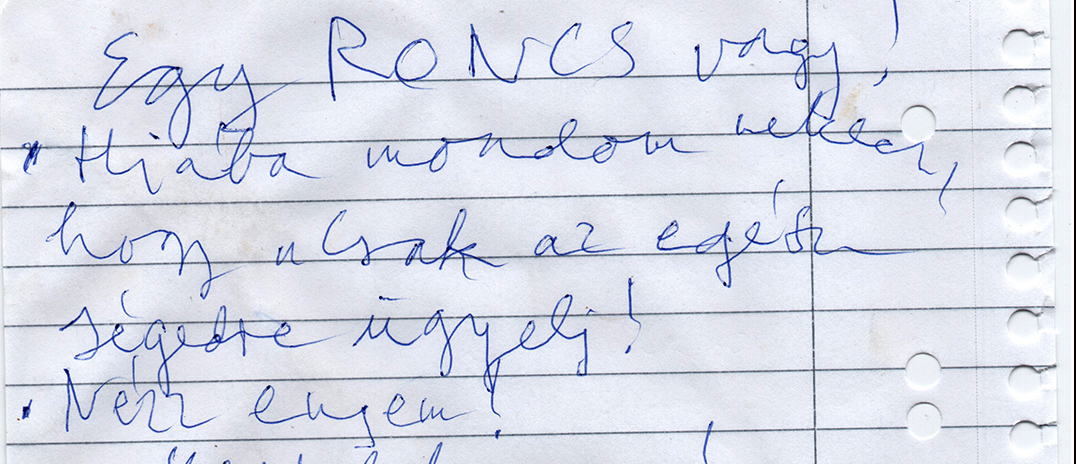 Egy RONCS vagy!
"Hiába mondom neked,
hogy csak az egész
ségedre ügyelj!
Nézz engem!